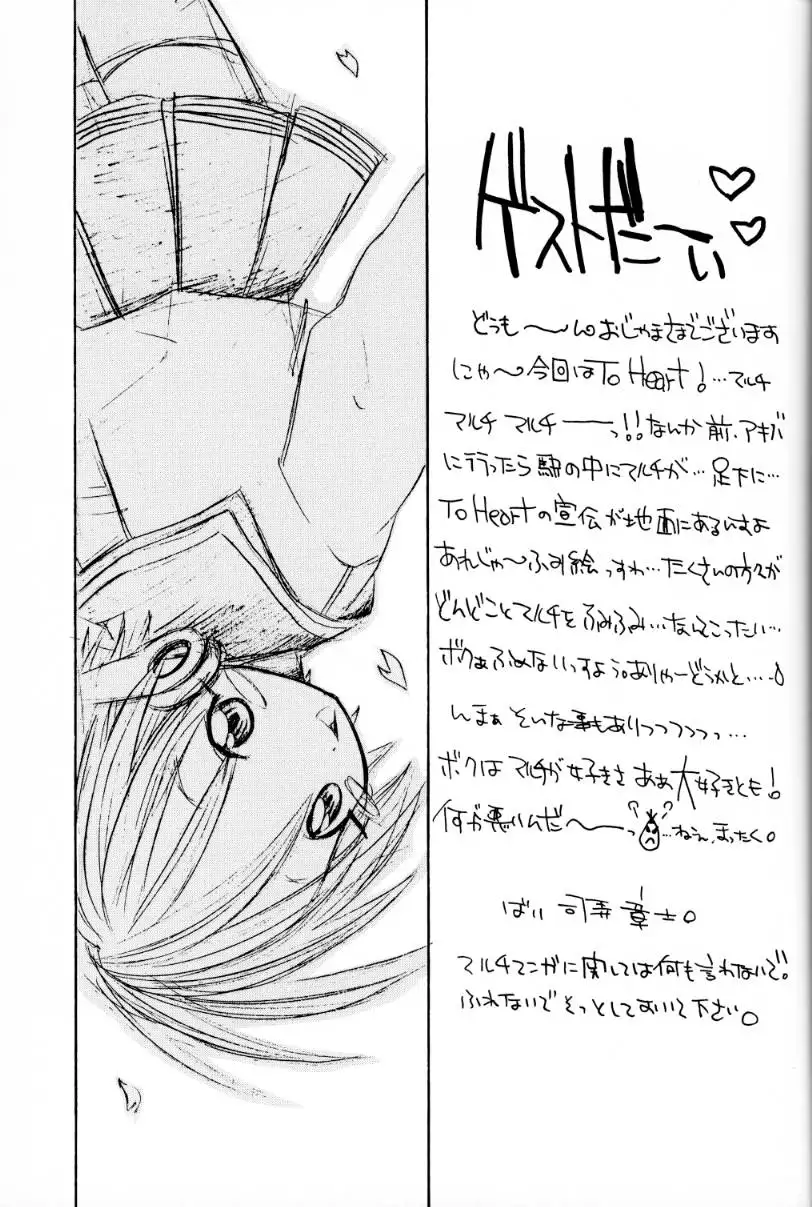 ゲストだーい♡♡
どうも〜んおじゃまさまでございます
にゃ〜今回はTo Heart!…マルチ
マルチ マルチーーっ!!なんか前、アキバ
に行ったら駅の中にマルチが…足下に…
To Heartの宣伝が地面にあるいますよ
あれじゃ〜ふす絵っすわ…たくさんの方々が
どんどことマルチをふみふみ…なんてこったい…
ボクぁふめないっすよう。ありゃーどうかと…。
んまぁそいな事もありつつつつっ…
ボクはマルチが大好きさ ああ大好きとも!
何が悪いんだ〜ーっ…ねぇ、まったく。
ばい 司 章士。
マルチマンガに関しては何も言わないで。
ふれないでそっとしておいて下さい。